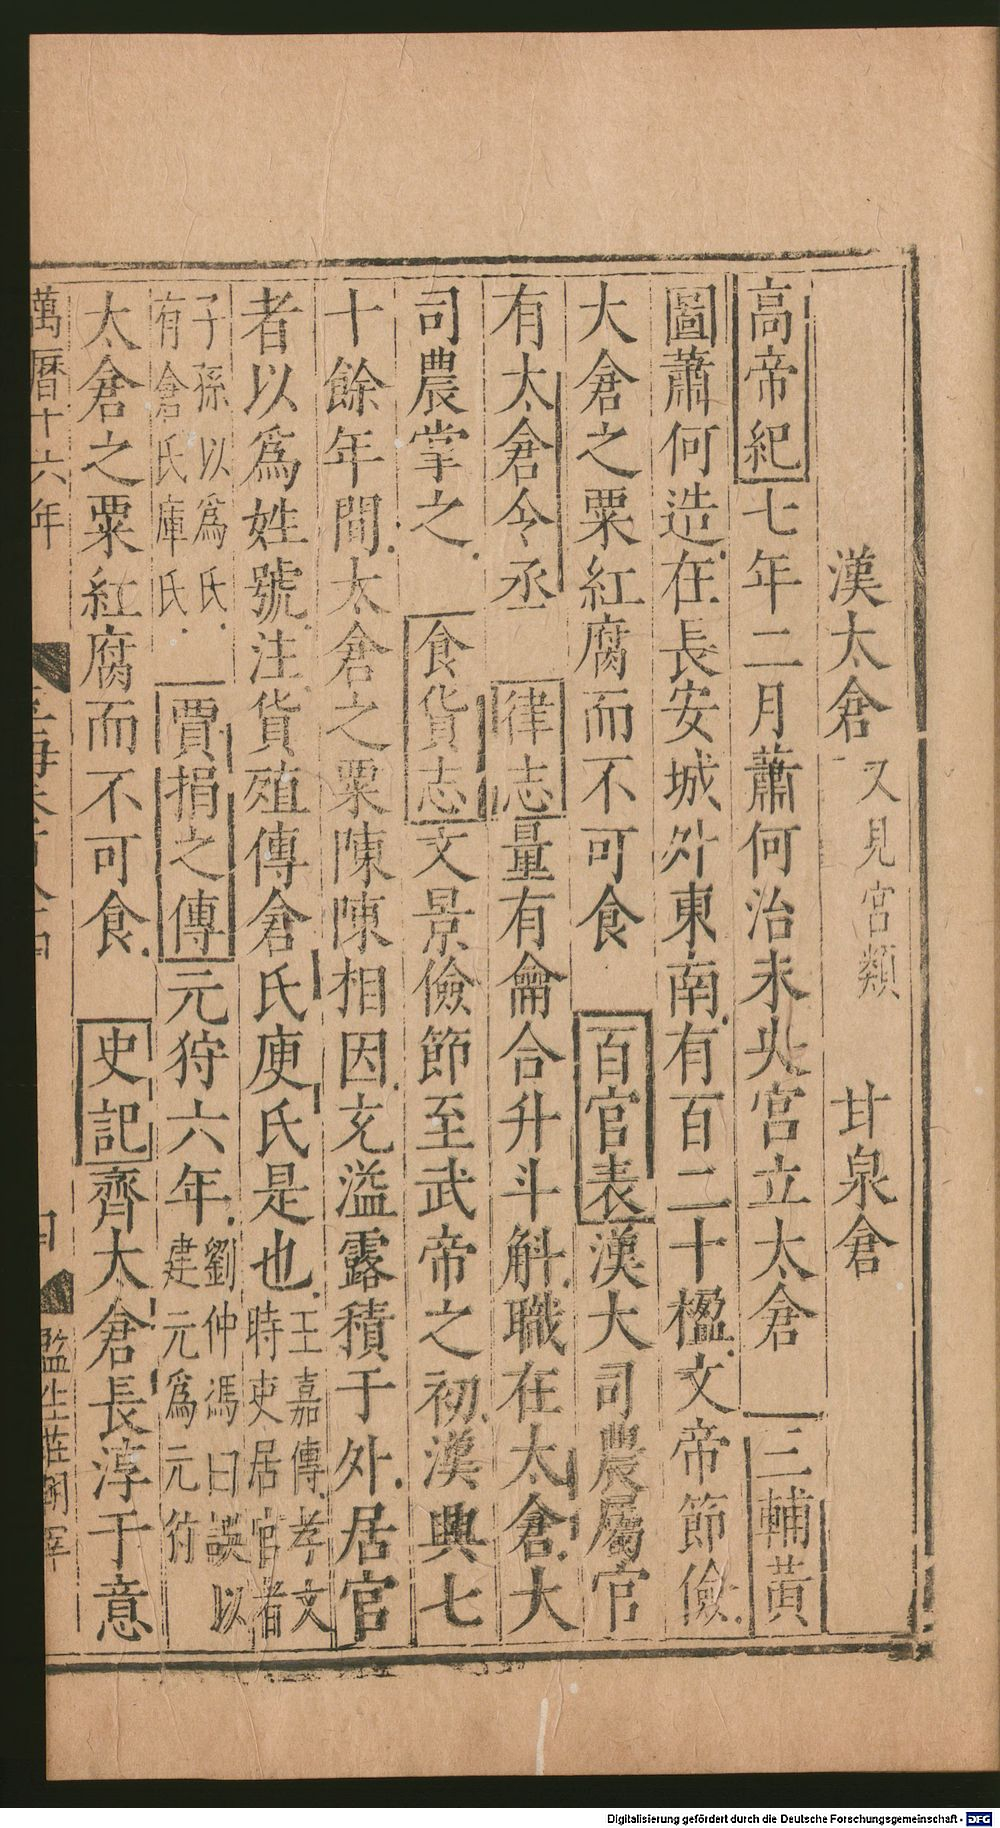 漢太倉 又見宮類 甘泉倉
高帝紀七年二月蕭何治未央宮立太倉 三輔黃
圖蕭何造在長安城外東南有百二十楹文帝節儉
大倉之粟紅腐而不可食 百官表漢大司農屬官
有太倉令丞 律志量有龠合升斗斛職在太倉大
司農掌之 食貨志文景儉節至武帝之初漢興七
十餘年間太倉之粟陳陳相因充溢露積于外居官
者以為姓號注貨殖傳倉氏庾氏是也王嘉傳孝文
時吏居官者
子孫以為氏
有倉氏庫氏 賈捐之傳元狩六年劉仲馮曰誤以
建元為元狩
太倉之粟紅腐而不可食 史記齊大倉長淳于意
萬曆十六年
監生莊
Digitalisierung gefördert durch die Deutsche Forschungsgemeinschaft - DFG